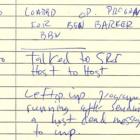 LOADED OP. PROGRAM
FOR BEN BARKER
BBN
Talked to SRI
Host to Host
Left op. program
running after sending
a host dead message
to imp.